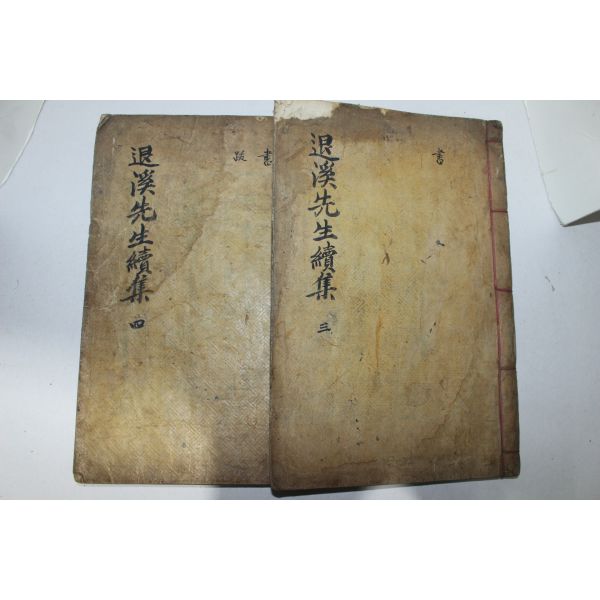 退溪先生續集
三
書
退溪先生續集
四
書
跋